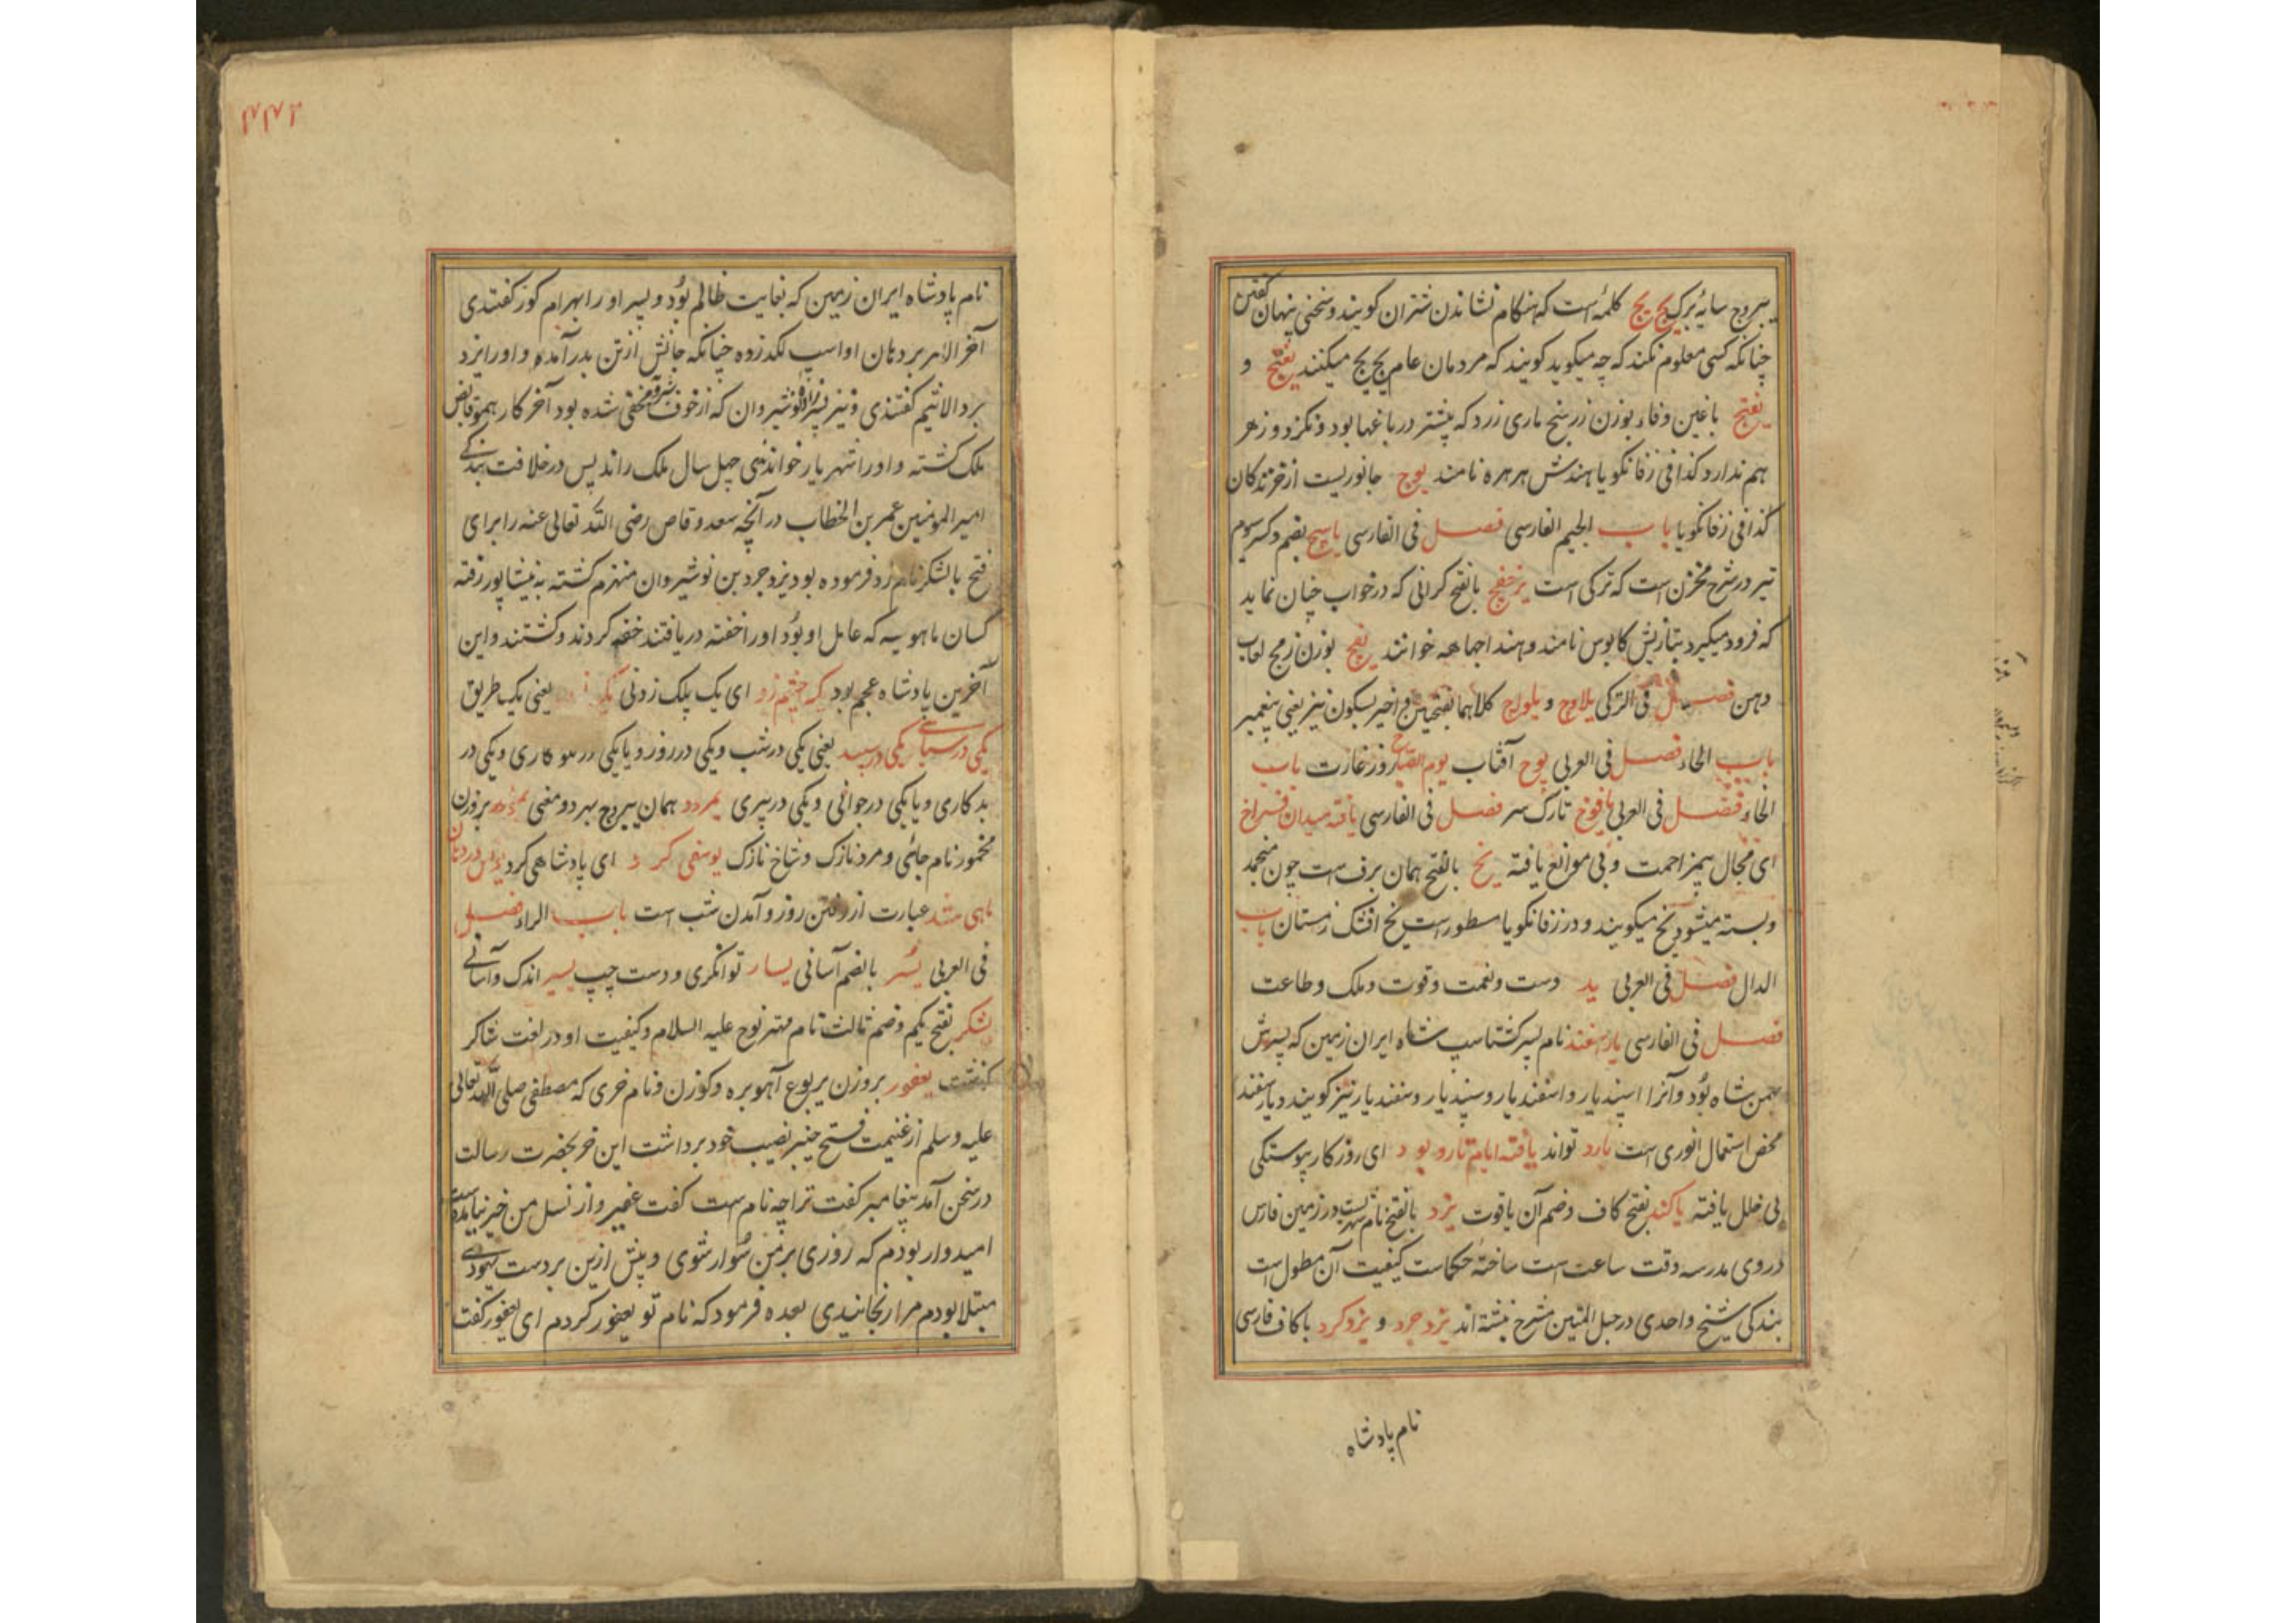 یبروج سایه برک یج یج کلمه است که هنکام نشاندن شتران کویند و سخنی پنهان کفتن
چنانکه کسی معلوم نکند که چه میکوید کویند که مردمان عام یج یج میکنند یفتج و
یغتج با غین و فاء بوزن زرنیخ ماری زرد که بیشتر در باغها بود و نکزد و زهر
هم ندارد کذا فی زفانکویا هندش هرهره نامند یوج جانوریست از خزندکان
کذا فی زفانکویا باب الجیم الفارسی فصل فی الفارسی یاسیج بضم و کسر سوم
تیر در شرح مخزن است که ترکی است یرخفج بالفتح کرانی که در خواب چنان نماید
که فرود میکیرد بتازیش کابوس نامند و هند اجهاهه خوانند یفج بوزن زمج لعاب
دهن فصل فی الترکی یلاوج و یلورج کلاهما بفتحتین و اخیر بسکون نیز یعنی پیغمبر
باب الحاء فصل فی العربی یوح آفتاب یوم الصباح روز غارت باب
الخاء فصل فی العربی یافوخ تارک سر فصل فی الفارسی یافته میدان فراخ
ای مجال بیمزاحمت و بی موانع یافته یخ بالفتح همان برف است چون منجمد
و بسته میشود یخ میکویند و در زفانکویا مسطور است یخ افشک زمستان باب
الدال فصل فی العربی ید دست و نعمت و قوت و ملک و طاعت
فصل فی الفارسی یارسفند نام پسر کشتاسپ شاه ایران زمین که پسرش
بهمن شاه بُود و آنرا اسپندیار و اسفندیار و سپندیار و سفندیار نیز کویند و یارسفند
محض استعمال انوری است یارد تواند یافته ایام تار و پود ای روزکار پیوستکی
بی خلل یافته یاکند بفتح کاف و ضم آن یاقوت یزد بالفتح نام شهریست در زمین فارس
در وی مدرسه وقت ساعت است ساختهٔ حکماست کیفیت آن مطول است
بندکی شیخ واحدی در حبل المتین مشرح نبشته اند یزدجرد و یزدکرد با کاف فارسی
نام پادشاه
نام پادشاه ایران زمین که بغایت ظالم بُود و پسر او را بهرام کور کفتندی
آخر الامر بر دهان او اسپ لکد زده چنانکه جانش از تن بدر آمده و او را یزد
برد الاثیم کفتندی و نیز پسرزاده نوشیروان که از خوف شیرویه مخفی شده بود آخر کار همو قابض
ملک کشته و او را شهریار خواندندی چهل سال ملک راند پس در خلافت بندکی
امیر المومنین عمر بن الخطاب در آنچه سعد وقاص رضی الله تعالی عنه را برای
فتح با لشکر نام زد فرموده بود یزدجرد بن نوشیروان منهزم کشته به نیشاپور رفته
کسان ماهویه که عامل او بُود او را خفته دریافتند خفه کردند و کشتند و این
آخرین پادشاه عجم بود یک چشم زد ای یک پلک زدنی یعنی یک طریق
یکی در سیاهی یکی در سپید یعنی یکی در شب و یکی در روز و یا یکی در نیکوکاری و یکی در
بدکاری و یا یکی در جوانی و یکی در پیری یمردد همان یبروج بهر دو معنی بر وزن
مخمور نام جائی و مرد نازک و شاخ نازک یوسفی کرد ای پادشاهی کرد یونس در دهان
ماهی شد عبارت از رفتن روز و آمدن شب است باب الراء فصل
فی العربی یُسر بالضم آسانی یسار توانکری و دست چپ یسیر اندک و آسانی
یشکر بفتح یکم و ضم ثالث نام مهتر نوح علیه السلام و کیفیت او در لغت شاکر
کذشت یعفور بروزن یربوع آهو بره و کوزن و نام خری که مصطفی صلی الله تعالی
علیه و سلم از غنیمت فتح خیبر نصیب خود برداشت این خر بحضرت رسالت
در سخن آمد پیغامبر کفت ترا چه نام است کفت عفیر و از نسل من خیر نیامده است
امیدوار بودم که روزی بر من سُوار شوی و پیش ازین بر دست یهودی
مبتلا بودم مرا رنجانیدی بعده فرمود که نام تو یعفور کردم ای یعفور کفت